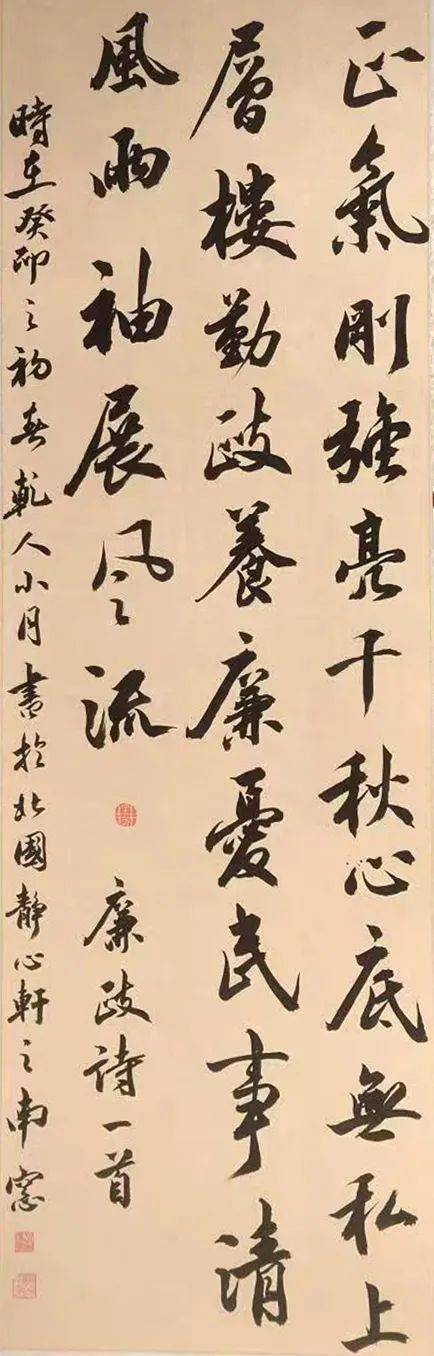 正氣剛強亮千秋心底無私上
層樓勤政養廉憂民事清
風兩袖展风流
廉政诗一首
時在癸卯之初春乾人小月書於北國靜心軒之南窓